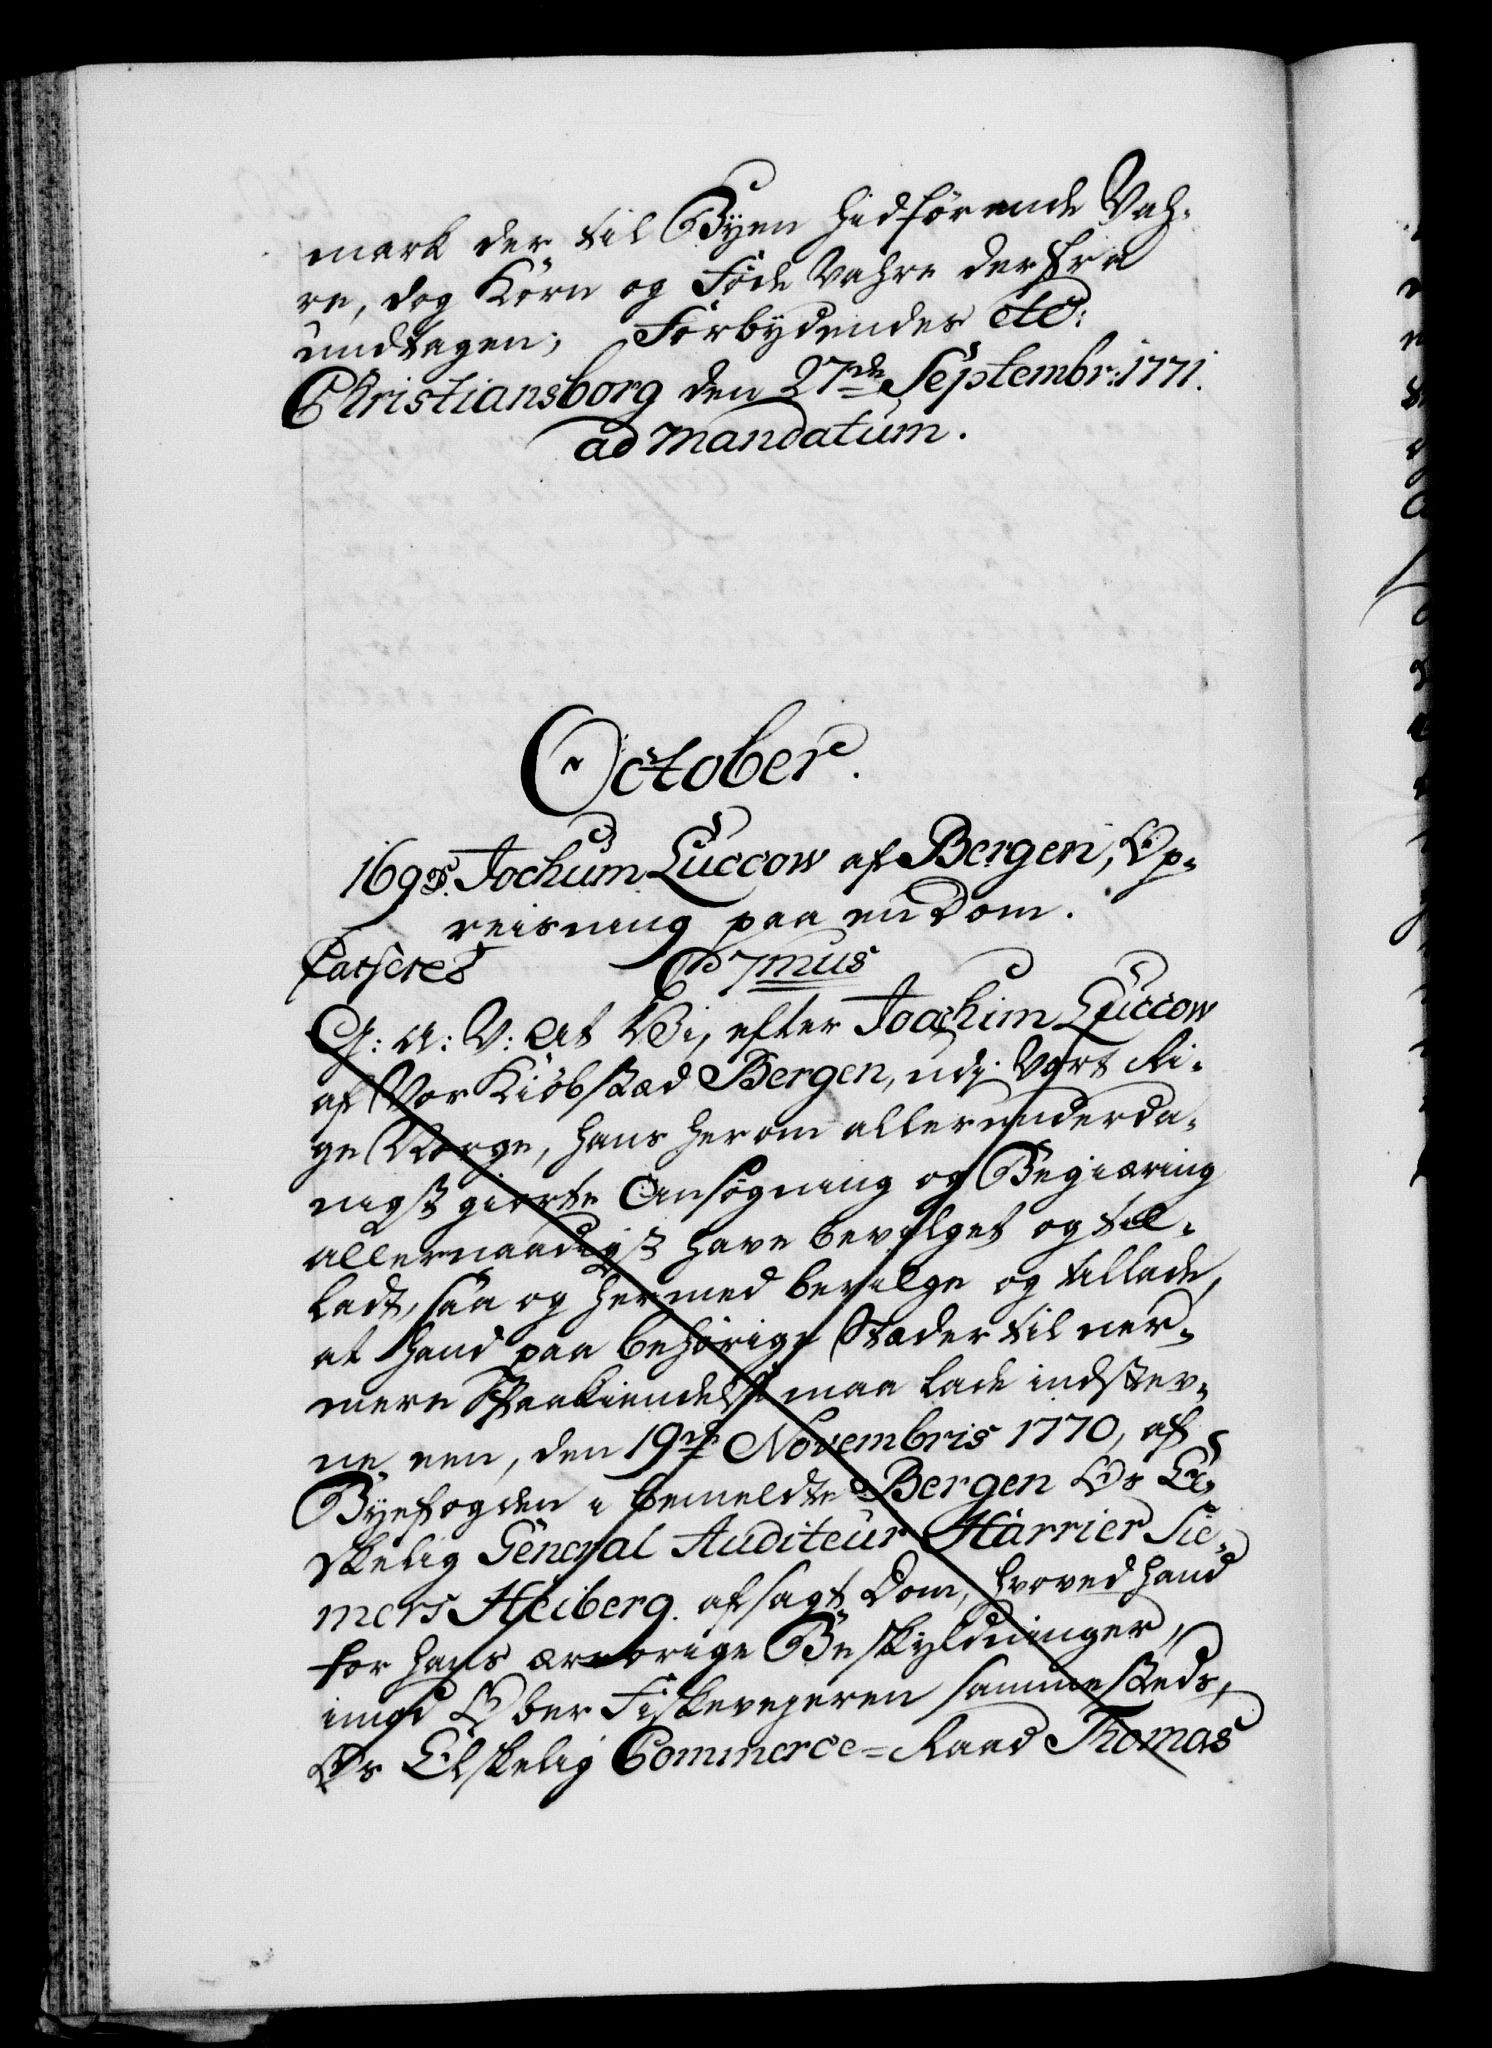 mark der til Byen hidførende Vah-
re, dog Korn og Føde Vahre derfra
undtagen; Forbydendes etc:
Christiansborg den 27de Septembr: 1771.
ad mandatum.
October.
169 Jochum Luccow af Bergen, Op-
reisning paa en Dom.
Casseret C 7mus
G: A: V: At Vi, efter Joachim Luccow
af Vor Kiöbstæd Bergen, udj Vort Ri-
ge Norge, hans herom allerunderda-
nigst giorte Ansøgning og Begiæring
allernaadigst have bevilget og til-
ladt, saa og hermed bevilge og tillade,
at hand paa behörige Stæder til nær-
mere Paakiendelse maa lade indstev-
ne een, den 19de Novembris 1770, af
Byefogden i bemeldte Bergen Os El-
skelig General Auditeur Harrier Sie-
mers Heiberg afsagt Dom, hvorved hand
for hans ærerørige Beskyldninger,
imod Ober Fiskevejeren sammesteds,
Os Elskelig Commerce-Raad Thomas